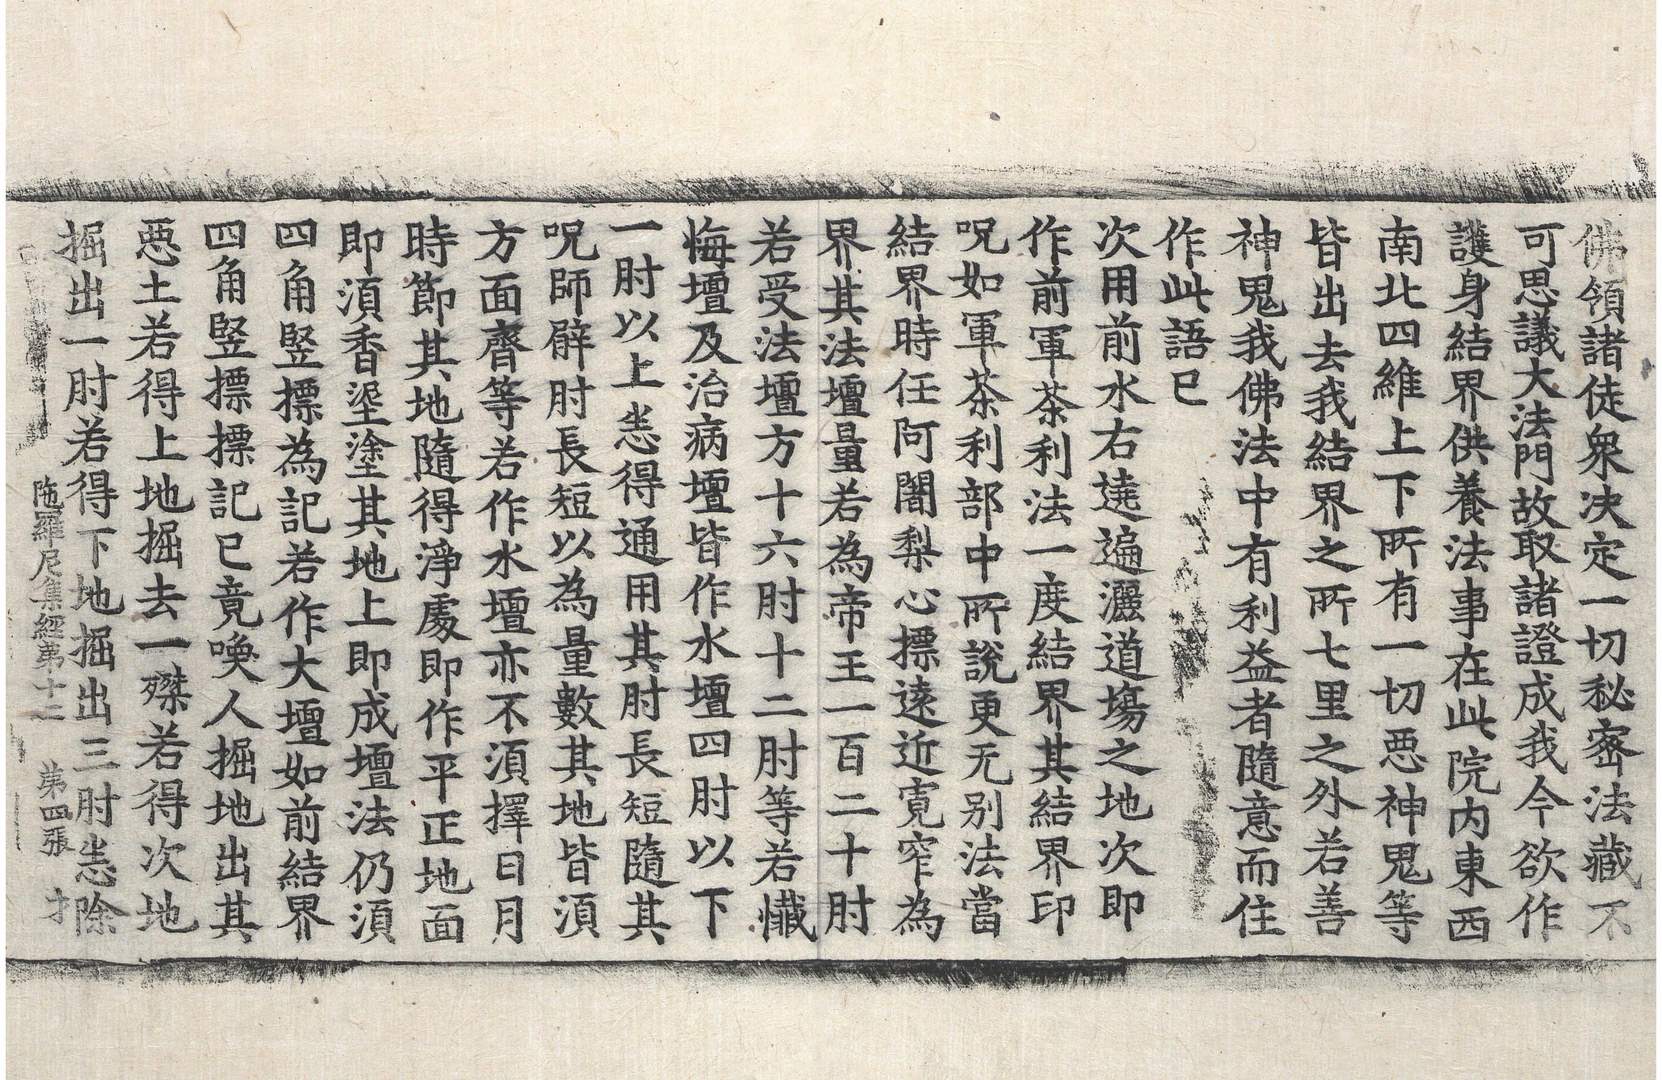 佛領諸徒衆決定一切秘密法藏不
可思議大法門故取諸證成我今欲作
護身結界供養法事在此院内東西
南北四維上下所有一切惡神鬼等
皆出去我結界之所七里之外若善
神鬼我佛法中有利益者隨意而住
作此語已
次用前水右遶遍灑道塲之地次即
作前軍茶利法一度結界其結界印
呪如軍茶利部中所說更无别法當
結界時任阿闍梨心摽遠近寬窄為
界其法壇量若為帝王一百二十肘
若受法壇方十六肘十二肘等若懺
悔壇及治病壇皆作水壇四肘以下
一肘以上恙得通用其肘長短隨其
呪師臂肘長短以為量數其地皆湏
方面齊等若作水壇亦不湏擇日月
時節其地隨得淨處即作平正地面
即湏香埿塗其地上即成壇法仍湏
四角竪摽為記若作大壇如前結界
四角竪摽摽記已竟喚人掘地出其
惡土若得上地掘去一磔若得次地
掘出一肘若得下地掘出三肘恙除
陁羅尼集經第十二 第四張 才